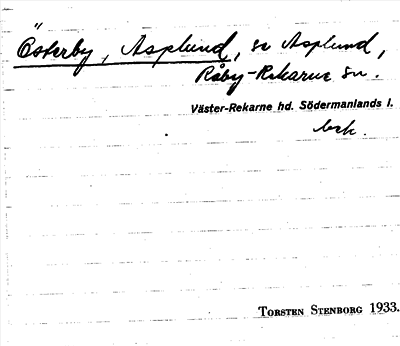 Österby, Asplund, se Asplund,
Råby-Rekarne sn.
Väster-Rekarne hd. Södermanlands l.
bek.
Torsten Stenborg 1933.